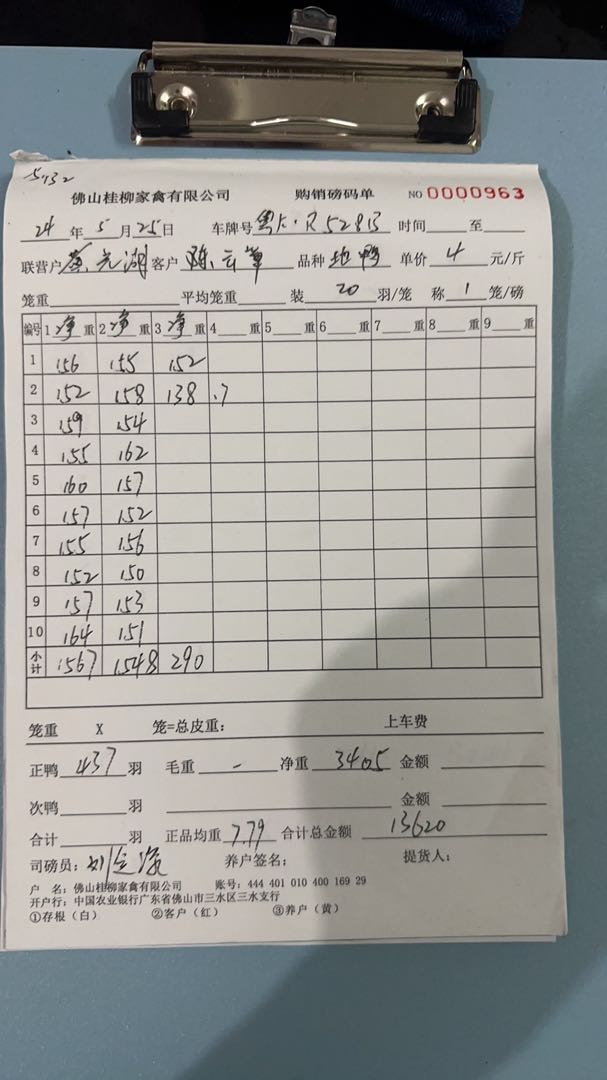 5132
佛山桂柳家禽有限公司 购销磅码单 NO 0000963
24 年 5 月 25 日 车牌号 粤 R52813 时间 至
联营户 黄光湖 客户 陈云 品种 地鸭 单价 4 元/斤
笼重 平均笼重 装 20 羽/笼 称 1 笼/磅
编号 1 净 重 2 净 重 3 净 重 4 重 5 重 6 重 7 重 8 重 9 重
1 156 155 152
2 152 158 138 .7
3 159 154
4 155 162
5 160 157
6 157 152
7 155 156
8 152 150
9 157 153
10 164 151
小计 1567 1548 290
笼重 X 笼=总皮重: 上车费
正鸭 437 羽 毛重 - 净重 3405 金额
次鸭 羽 金额
合计 羽 正品均重 7.79 合计总金额 13620
司磅员: 刘 养户签名: 提货人:
户 名: 佛山桂柳家禽有限公司 账号: 444 401 010 400 169 29
开户行: 中国农业银行广东省佛山市三水区三水支行
①存根(白) ②客户(红) ③养户(黄)